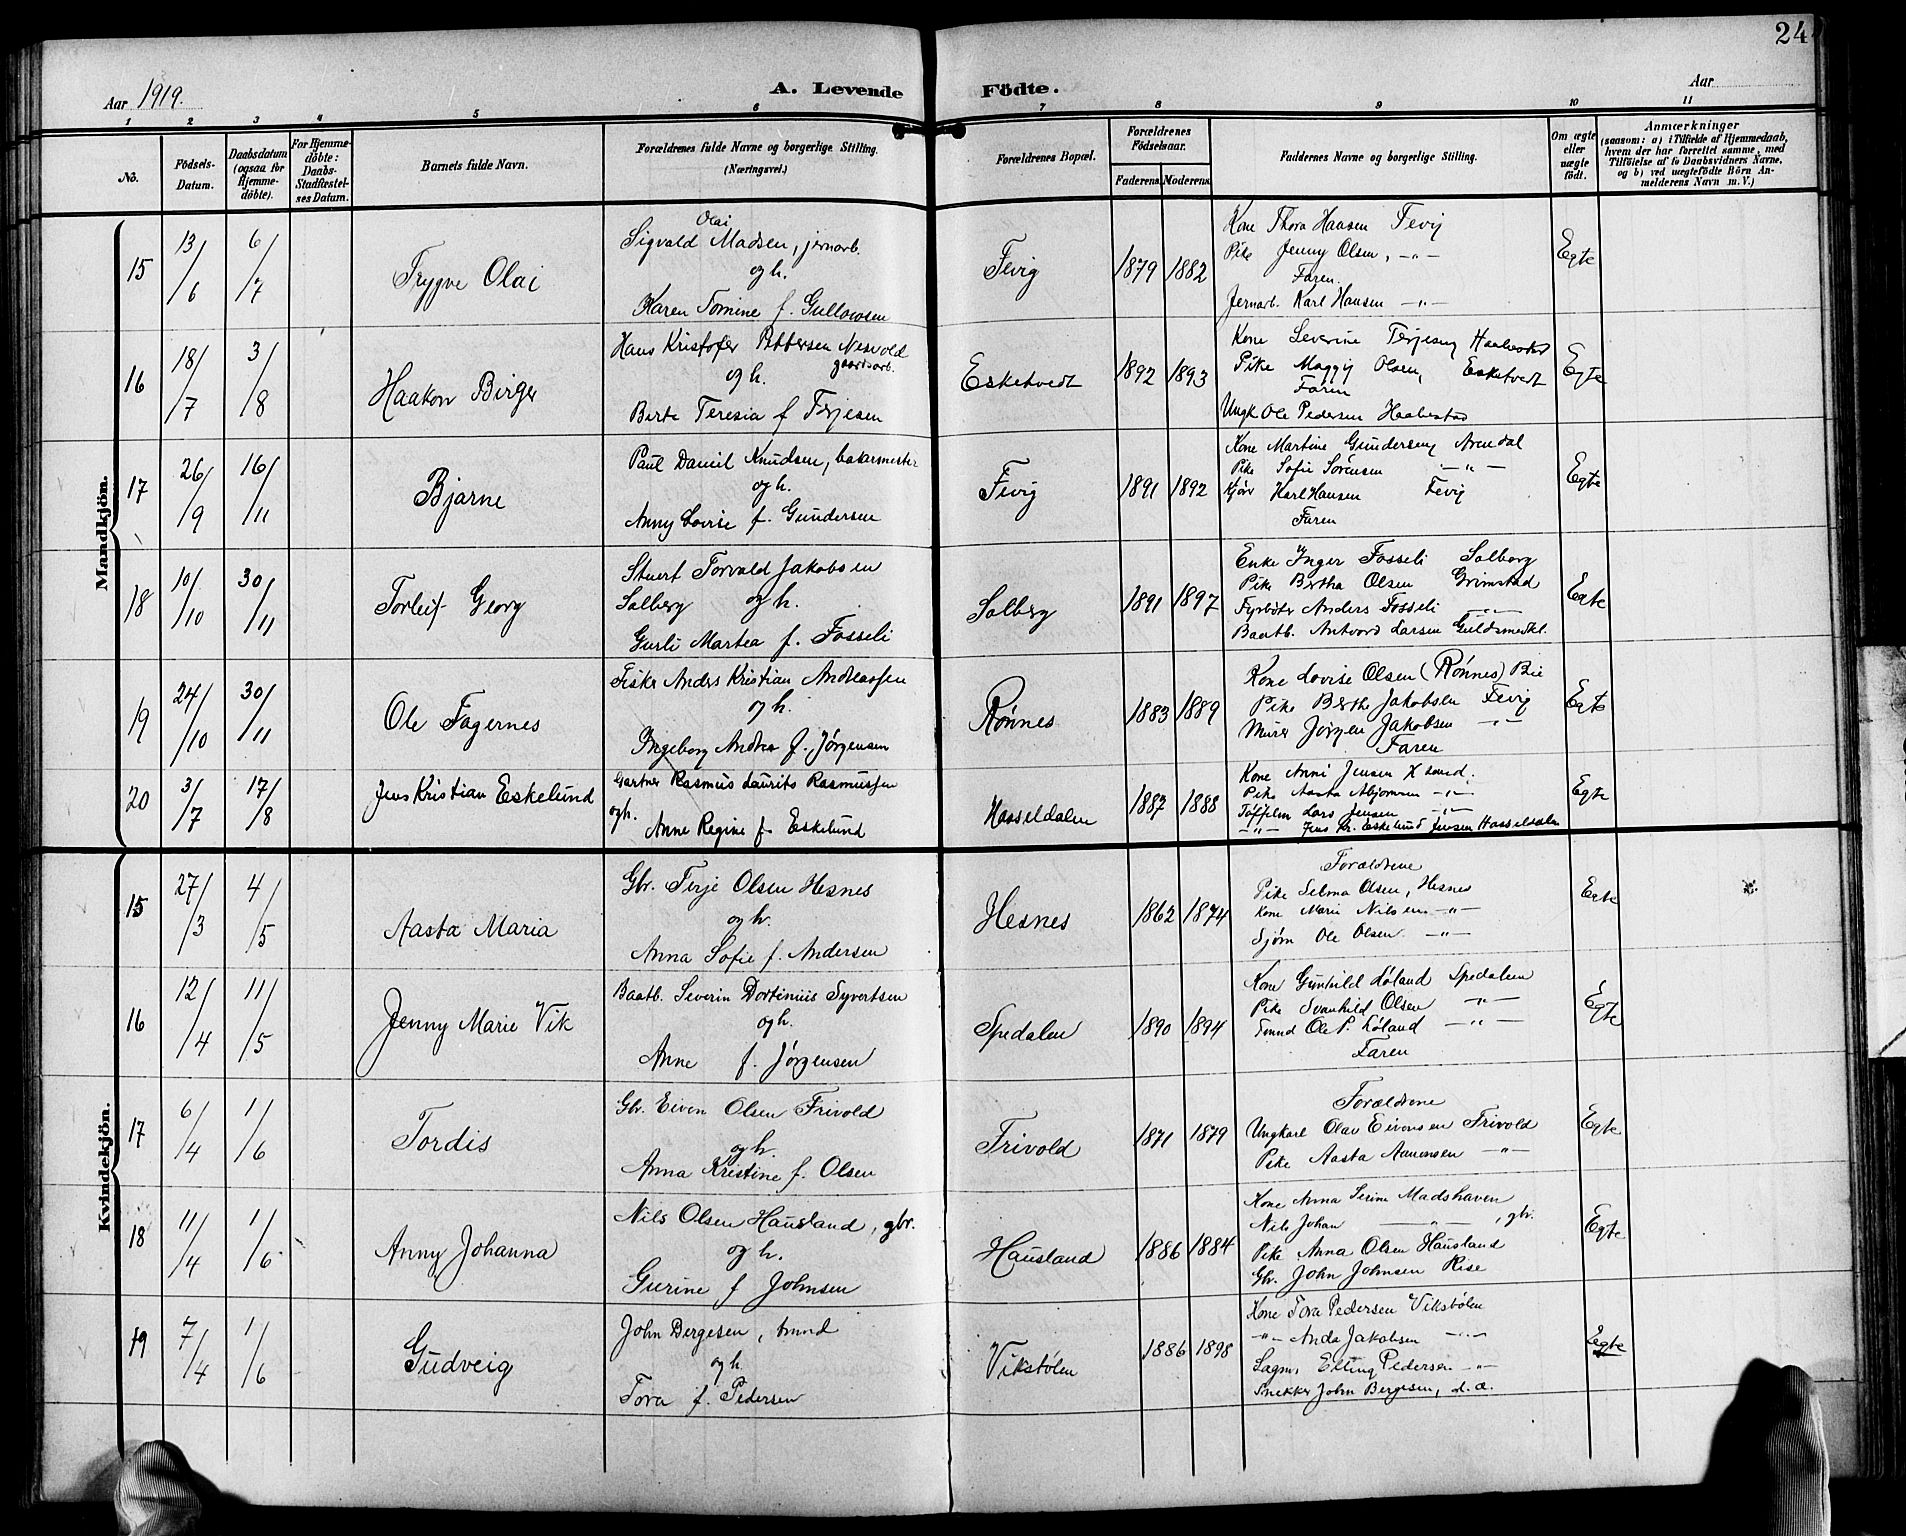 24
Aar 1919.
A. Levende Födte.
Aar
1 2 3 4 5 6 7 8 9 10 11
No.
Födsels-Datum.
Daabsdatum (ogsaa for Hjemme-döbte).
For Hjemme-döbte: Daabs-Stadfæstel-ses Datum.
Barnets fulde Navn.
Forældrenes fulde Navne og borgerlige Stilling. (Næringsvei.)
Forældrenes Bopæl.
Forældrenes Födselsaar.
Faderens. Moderens.
Faddernes Navne og borgerlige Stilling.
Om ægte eller uægte födt.
Anmærkninger
(saasom: a) i Tilfælde af Hjemmedaab,
hvem der har forrettet samme, med
Tilföielse af to Daabsvidners Navne,
og b) ved uægtefödte Börn An-
melderens Navn m. V.)
Mandkjön.
15 13/6 6/7 Trygve Olai
Olai
Sigvald Madsen, jernarb.
og h.
Karen Tomine f. Gullowsen
Fevig 1879 1882
Kone Thora Hansen Fevig
Pike Jenny Olsen, -"-
Faren.
Jernarb. Karl Hansen -"-
Egte
16 18/7 3/8 Haakon Birger
Hans Kristofer Pettersen Nesvold
gaardsarb.
og h.
Berte Teresia f Terjesen
Esketvedt 1892 1893
Kone Severine Terjesen
Pike Maggy Olsen, Esketvedt
Faren
Ungk. Ole Pedersen Haabestad
Egte
17 26/9 16/11 Bjarne
Paul Daniel Knudsen, bakermester
og h.
Anny Lovise f. Gundersen
Fevig 1891 1892
Kone Martine Gundersen, Arendal
Pike Sofie Sørensen -"-
Karl Hansen Fevig
Faren
Egte
18 10/10 30/11 Torleif Georg
Stuert Torvald Jakobsen
Solberg og h.
Gurli Martea f. Fosseli
Solberg 1891 1897
Enke Inger Fosseli Solberg
Pike Bertha Olsen Grimstad
Fyrbøter Anders Fosseli -"-
Baatb. Antvord Larsen Guldsmedkl.
Egte
19 24/10 30/11 Ole Fagernes
Fisker Anders Kristian Andreassen
og h.
Ingeborg Andrea f. Jørgensen
Rønnes 1883 1889
Kone Lovise Olsen (Rønnes) Bie
Pike Berthe Jakobsen Fevig
Murer Jørgen Jakobsen -"-
Faren
Egte
20 3/7 17/8 Jens Kristian Eskelund
Gartner Rasmus Laurits Rasmussen
og h.
Anne Regine f. Eskelund
Hasseldalen 1887 1888
Kone Anni Jensen X sand.
Pike Aasta Abjornsen -"-
Lars Jensen -"-
-"- Jens Kr. Eskelund Jensen Hasseldalen
Egte
Kvindekjön.
15 27/3 4/5 Aasta Maria
Gbr. Terje Olsen Hesnes
og h.
Anna Sofie f. Andersen
Hesnes 1862 1874
Forældrene
Pike Selma Olsen, Hesnes
Kone Marie Nilsen -"-
Sjøm Ole Olsen. -"-
Egte
16 12/4 11/5 Jenny Marie Vik
Baatb. Severin Dortinius Syvertsen
og h.
Anne f. Jørgensen
Spedalen 1890 1894
Kone Gunhild Løland Spedalen
Pike Svanhild Olsen -"-
Tmnd Ole P. Løland -"-
Faren
Egte
17 6/4 1/6 Tordis
Gbr. Eiven Olsen Frivold
og h.
Anna Kristine f. Olsen
Frivold 1871 1879
Forældrene
Ungkarl Olav Eivensen Frivold
Pike Aasta Aanonsen -"-
Egte
18 11/4 1/6 Anny Johanna
Nils Olsen Hausland, gbr.
og h.
Gurine f Johnsen
Hausland 1886 1884
Kone Anna Serine Madshaven
Nils Johan -"-, gbr.
Pike Anna Olsen Hausland
Gbr. John Johnsen Rise
Egte
19 7/4 1/6 Gudveig
John Bergesen, tmnd
og h.
Tora f. Pedersen
Vikstølen 1886 1898
Kone Tora Pedersen Vikstølen
-"- Anda Jakobsen -"-
Sagm. Elling Pedersen -"-
Snekker John Bergesen, d.æ.
Egte